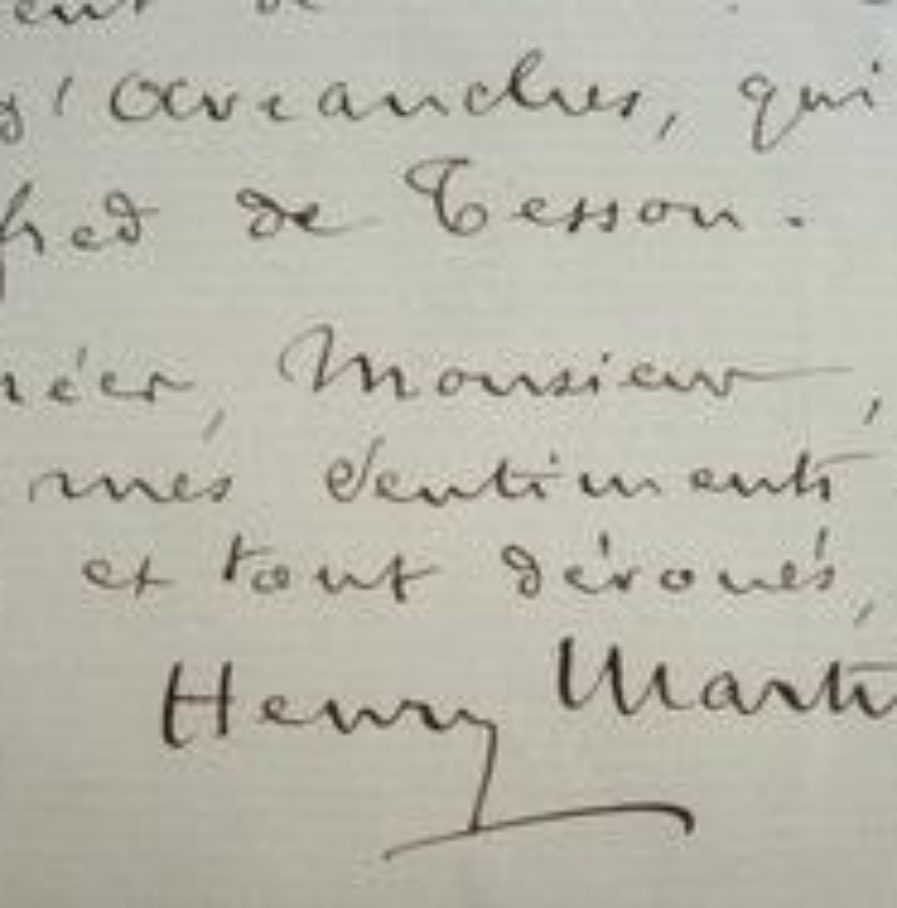 de
d'Avranches, qui
fred de Tesson.
réer, Monsieur,
mes sentiments
et tout dévoués,
Henry Marti